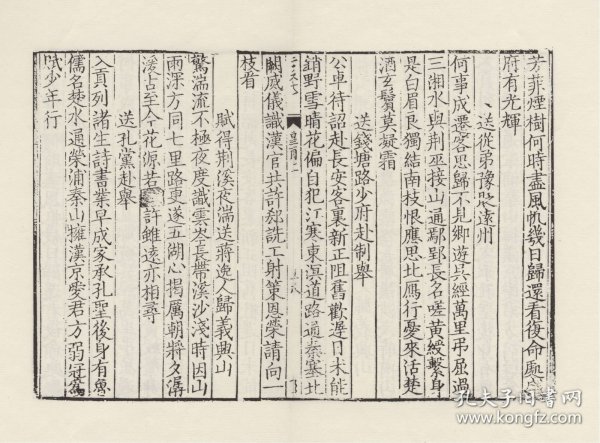 芳菲煙樹何時盡風帆幾日歸還看復命處盛
府有光輝
送從弟豫貶遠州
何事成遷客思歸不見鄉遊吳經萬里弔屈過
三湘水與荆巫接山通鄢郢長名嗟黃綬繫身
是白眉良獨結南枝恨應思北雁行憂來沽楚
酒玄鬢莫疑霜
送錢塘路少府赴制舉
公車待詔赴長安客裏新正阻舊歡遲日未能
銷野雪晴花偏自犯江寒東溟道路通秦塞北
闕威儀識漢官共許郄詵工射策恩榮請向一
枝看
賦得荆溪夜湍送蔣逸人歸義興山
驚湍流不極夜度識雲岑長帶溪沙淺時因山
雨深方同七里路更遂五湖心揭厲朝將夕潺
湲古至今花源若許雖遠亦相尋
送孔黨赴舉
入貢列諸生詩書業早成家承孔聖後身有魯
儒名楚水通滎浦秦山擁漢京愛君方弱冠為
賦少年行
孔夫子旧书网
www.kongfz.com